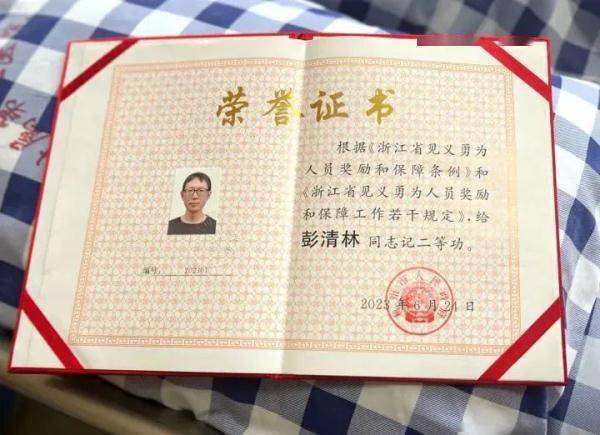 荣誉证书
根据《浙江省见义勇为
人员奖励和保障条例》和
《浙江省见义勇为人员奖励
和保障工作若干规定》,给
彭清林 同志记二等功。
编号:
2023年6月24日